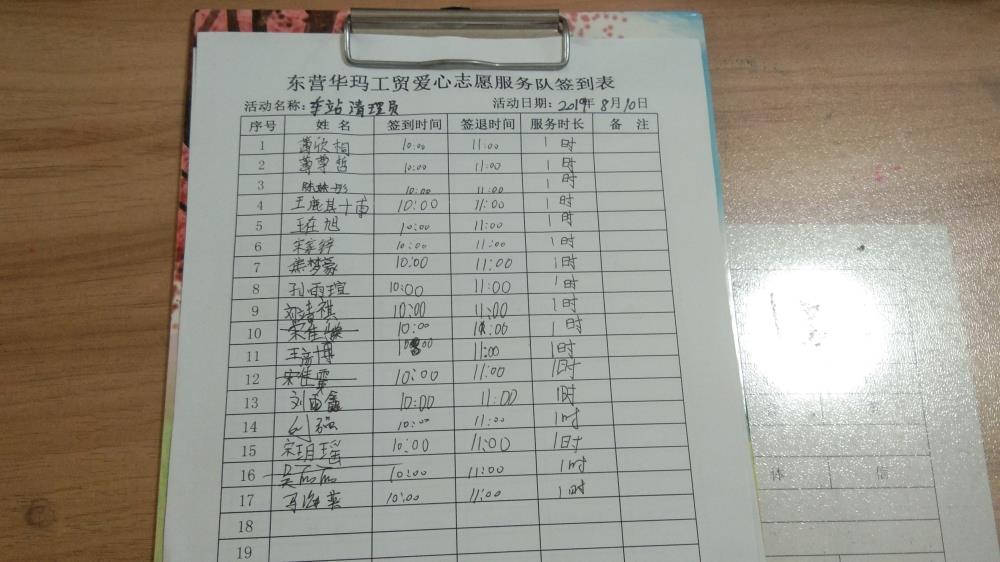 东营华玛工贸爱心志愿服务队签到表
活动名称：车站清理员 活动日期：2019年8月10日
序号 姓名 签到时间 签退时间 服务时长 备注
1 10:00 11:00 1时
2 10:00 11:00 1时
3 10:00 11:00 1时
4 10:00 11:00 1时
5 王在旭 10:00 11:00 1时
6 10:00 11:00 1时
7 焦梦豪 10:00 11:00 1时
8 孙雨瑄 10:00 11:00 1时
9 刘靖祺 10:00 11:00 1时
10 10:00 11:00 1时
11 11:00 1时
12 10:00 11:00 1时
13 刘雨鑫 10:00 11:00 1时
14 10:00 11:00 1时
15 宋玥瑶 10:00 11:00 1时
16 10:00 11:00 1时
17 马海英 10:00 11:00 1时
18
19